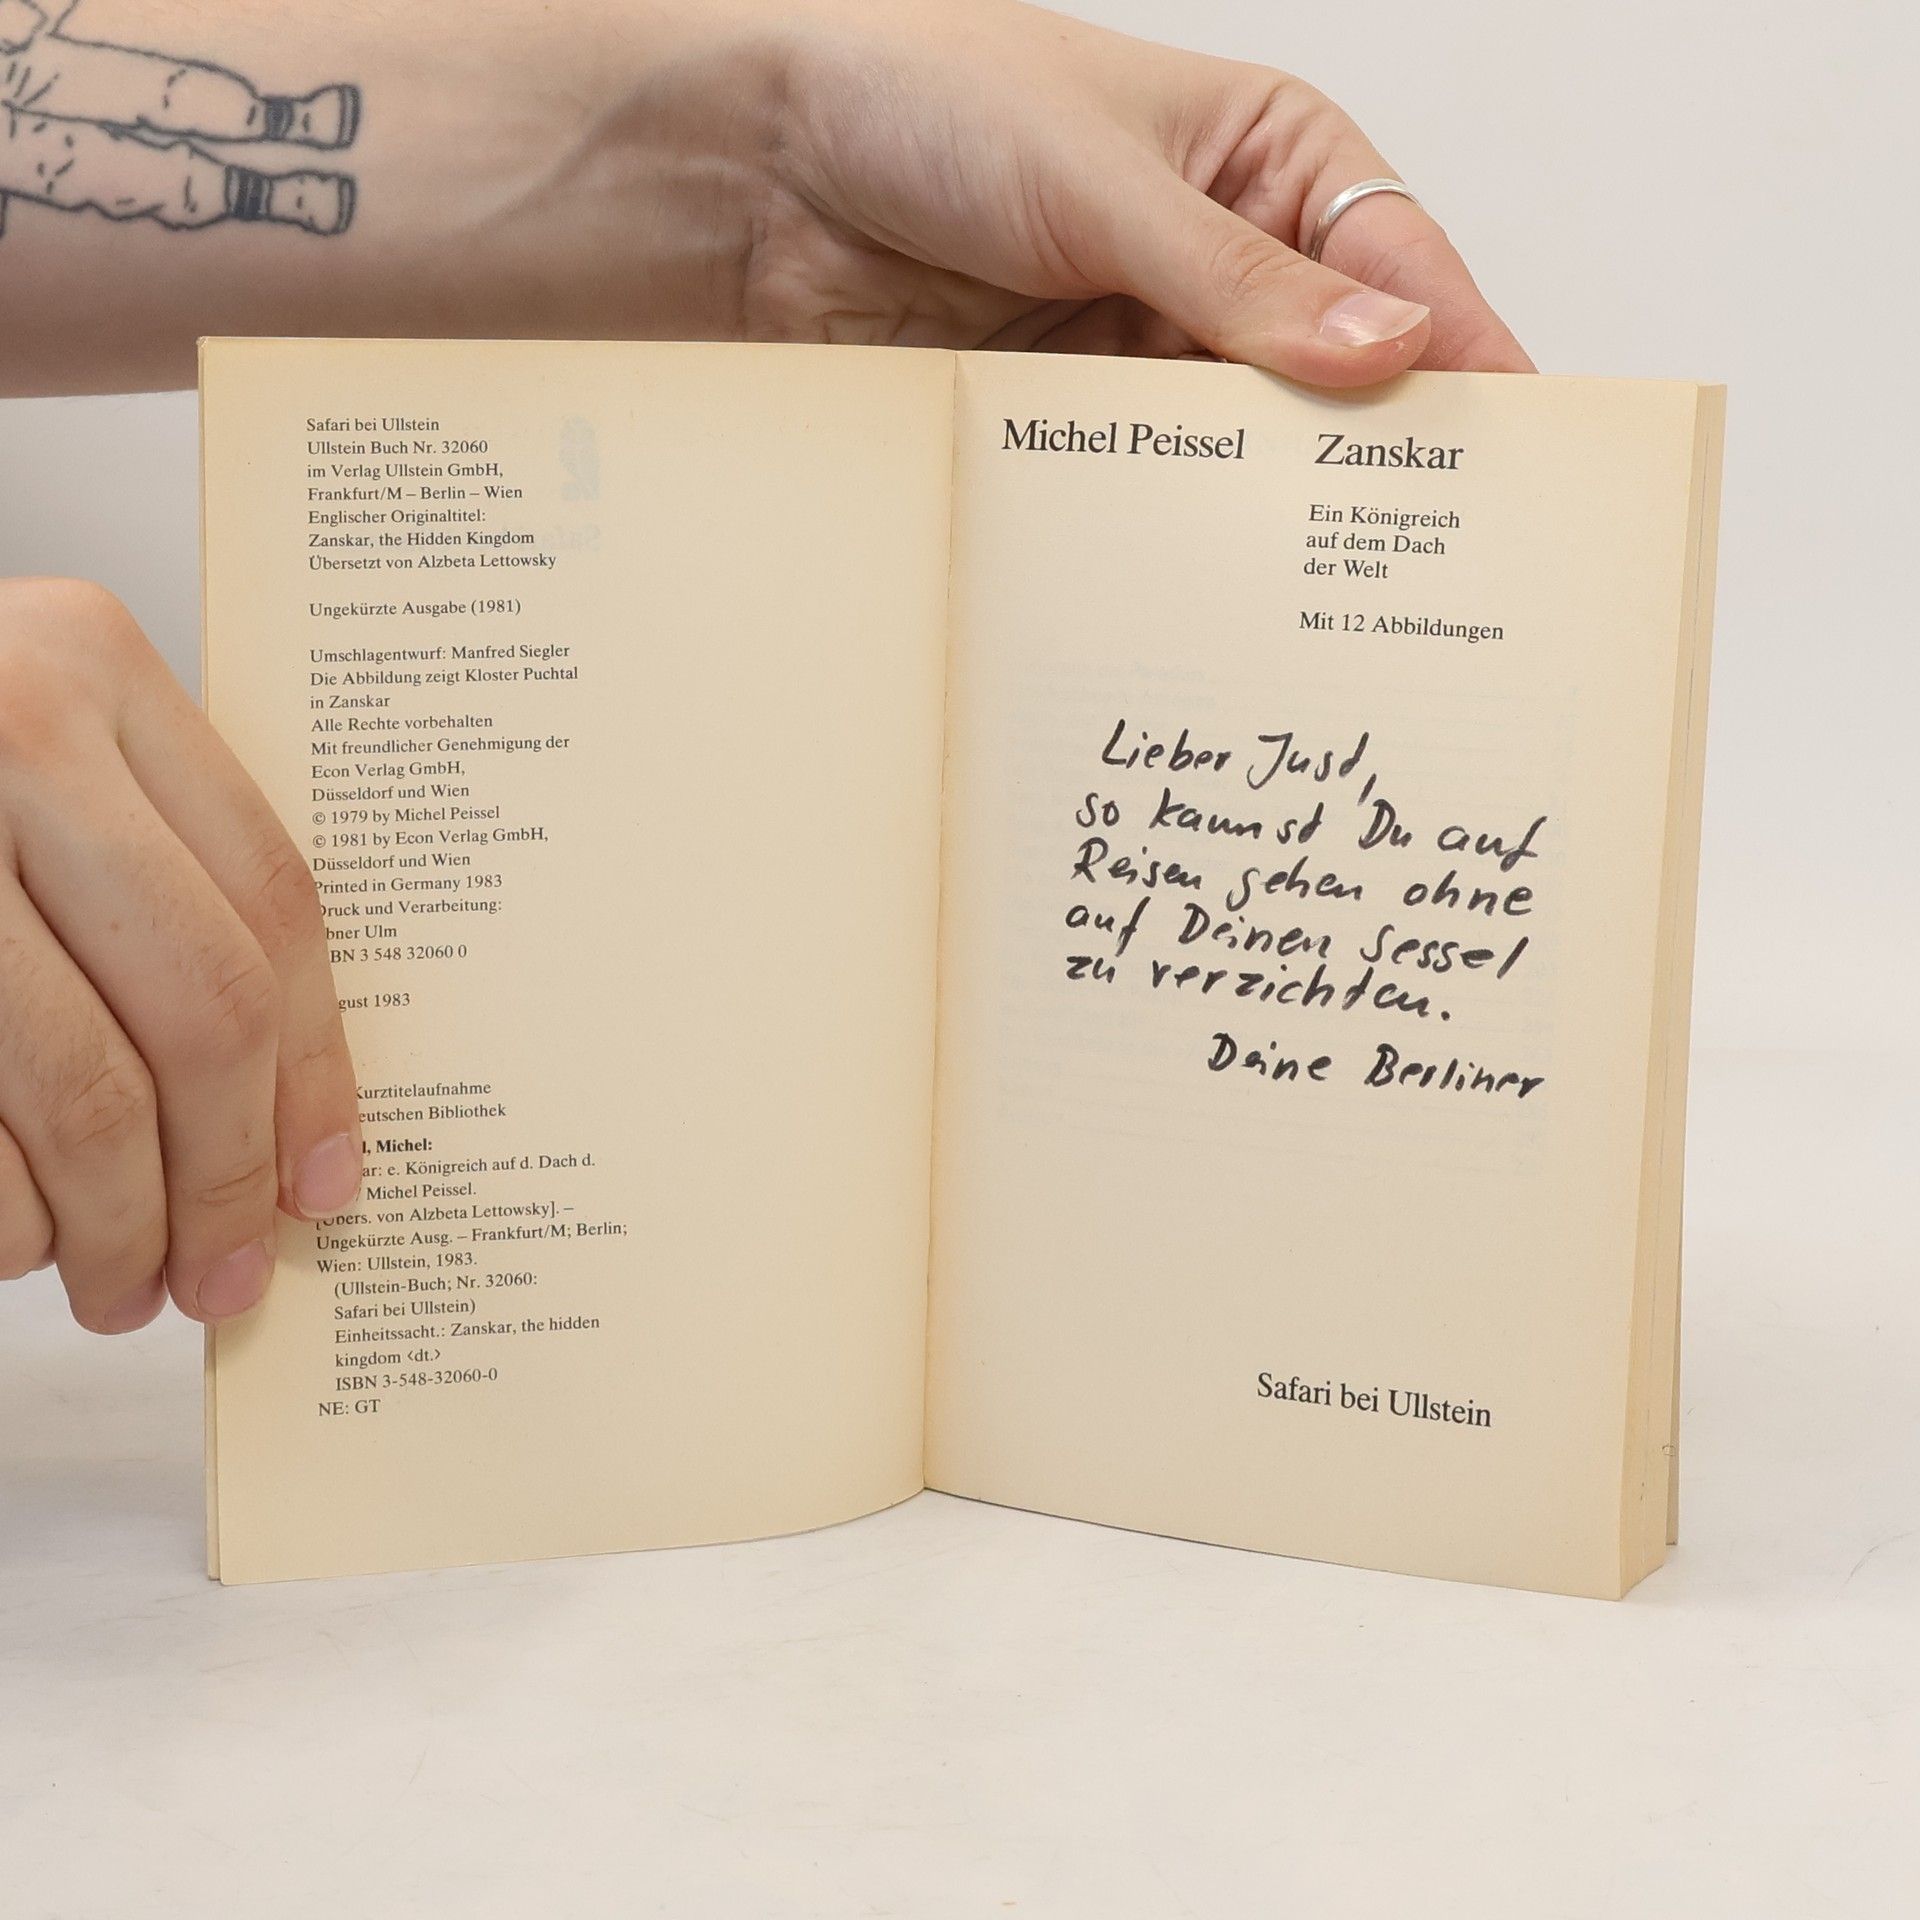 Safari bei Ullstein
Ullstein Buch Nr. 32060
im Verlag Ullstein GmbH,
Frankfurt/M – Berlin – Wien
Englischer Originaltitel:
Zanskar, the Hidden Kingdom
Übersetzt von Alzbeta Lettowsky
Ungekürzte Ausgabe (1981)
Umschlagentwurf: Manfred Siegler
Die Abbildung zeigt Kloster Puchtal
in Zanskar
Alle Rechte vorbehalten
Mit freundlicher Genehmigung der
Econ Verlag GmbH,
Düsseldorf und Wien
© 1979 by Michel Peissel
© 1981 by Econ Verlag GmbH,
Düsseldorf und Wien
Printed in Germany 1983
Druck und Verarbeitung:
bner Ulm
BN 3 548 32060 0
gust 1983
Kurztitelaufnahme
eutschen Bibliothek
l, Michel:
ar: e. Königreich auf d. Dach d.
/ Michel Peissel.
[Übers. von Alzbeta Lettowsky]. –
Ungekürzte Ausg. – Frankfurt/M; Berlin;
Wien: Ullstein, 1983.
(Ullstein-Buch; Nr. 32060:
Safari bei Ullstein)
Einheitssacht.: Zanskar, the hidden
kingdom <dt.>
ISBN 3-548-32060-0
NE: GT
Michel Peissel Zanskar
Ein Königreich
auf dem Dach
der Welt
Mit 12 Abbildungen
Lieber Just,
so kannst Du auf
Reisen gehen ohne
auf Deinen Sessel
zu verzichten.
Deine Berliner
Safari bei Ullstein